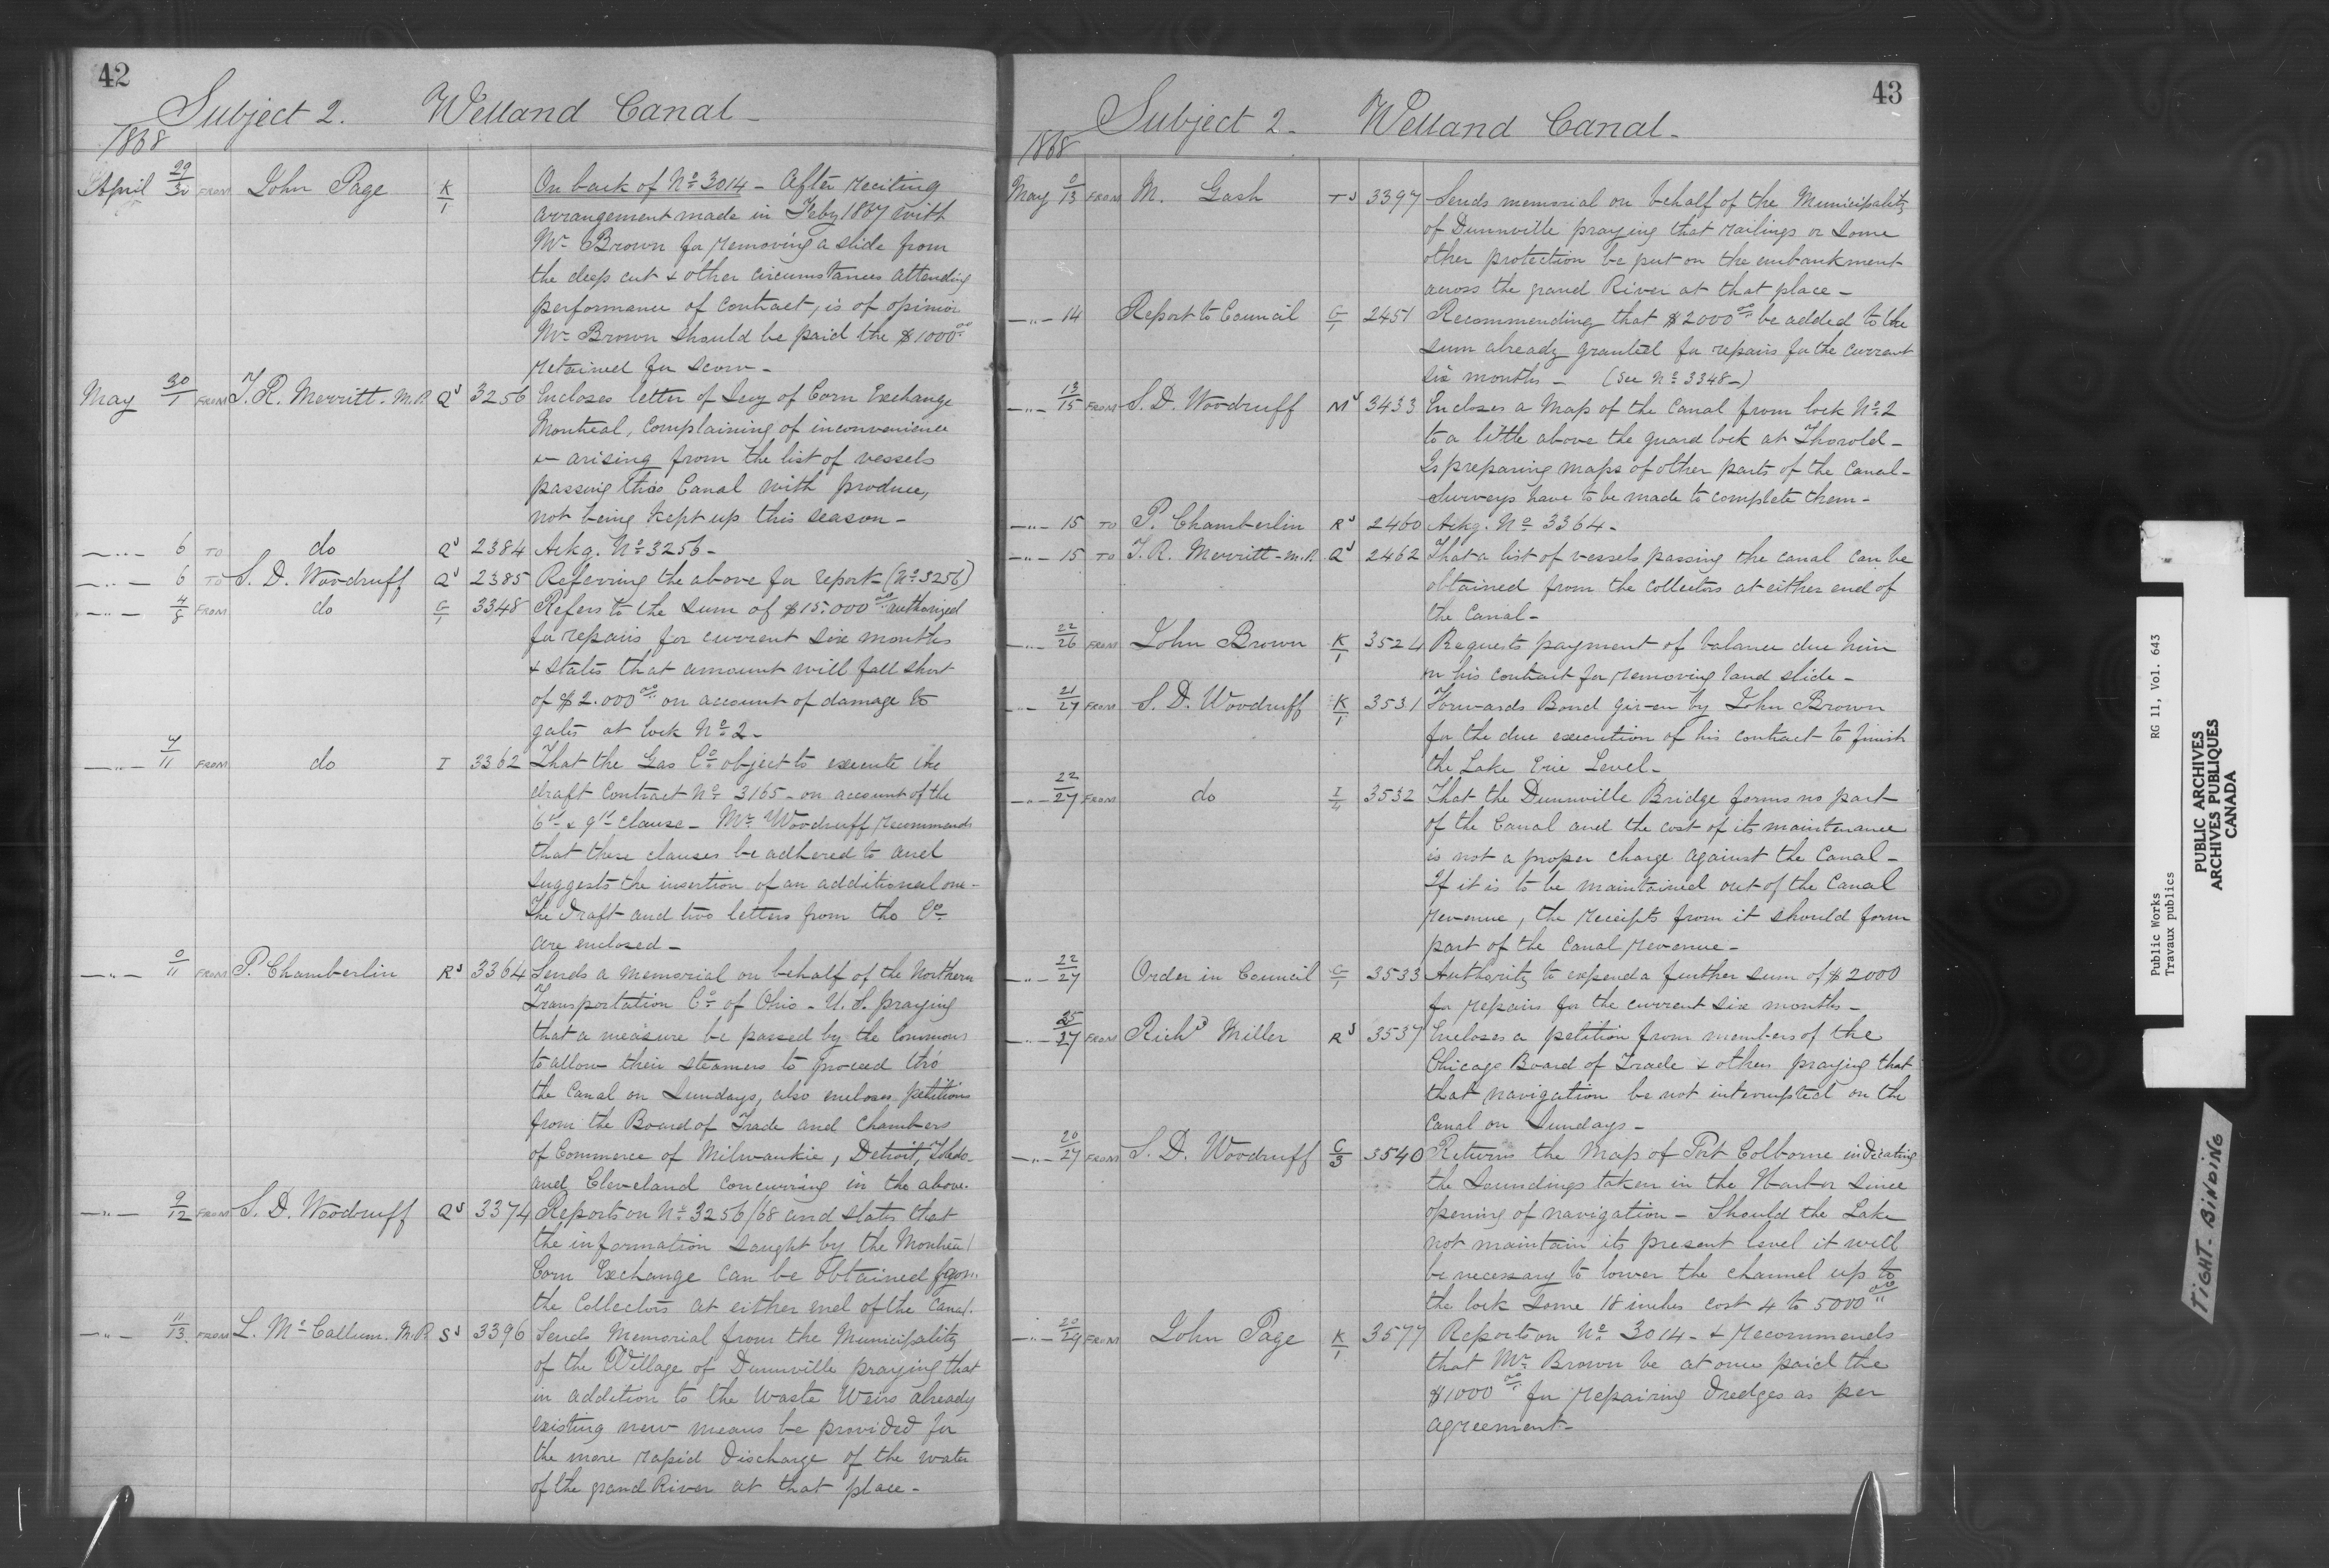 42
Subject 2. Welland Canal -
1868
April 29/30 FROM John Page K/1 On back of No 3014 - After reciting
arrangement made in Feby 1867 with
Mr Brown for removing a slide from
the deep cut & other circumstances attending
performance of contract, is of opinion
Mr Brown should be paid the $1000.00
retained for scow -
May 30/1 FROM T. R. Merritt. M.P. QJ 3256 Encloses letter of Secy of Corn Exchange
Montreal, complaining of inconvenience
&c arising from the list of vessels
passing thro Canal with produce,
not being kept up this season -
-"- 6 TO do QJ 2384 Ackg. No 3256 -
-"- 6 TO S. D. Woodruff QJ 2385 Referring the above for report - (No 3256)
-"- 4/8 FROM do G/1 3348 Refers to the sum of $15.000.00 authorized
for repairs for current six months
& states that amount will fall short
of $2.000.00 on account of damage to
gates at lock No 2 -
-"- 7/11 FROM do I 3362 That the Gas Co object to execute the
draft contract No 3165 - on account of the
6th & 9th clause - Mr Woodruff recommends
that these clauses be adhered to and
suggests the insertion of an additional one -
The draft and two letters from the Co
are enclosed -
-"- 9/11 FROM P. Chamberlin RJ 3364 Sends a memorial on behalf of the Northern
Transportation Co of Ohio - U.S. praying
that a measure be passed by the Commons
to allow their steamers to proceed thro'
the Canal on Sundays, also encloses petitions
from the Board of Trade and Chambers
of Commerce of Milwaukie, Detroit, Toledo
and Cleveland concurring in the above.
-"- 9/12 FROM S. D. Woodruff QJ 3374 Reports on No 3256/68 and states that
the information sought by the Montreal
Corn Exchange can be obtained from
the Collectors at either end of the Canal.
-"- 11/13 FROM L. McCallum. M.P. SJ 3396 Sends Memorial from the Municipality
of the Village of Dunnville praying that
in addition to the Waste Weirs already
existing new means be provided for
the more rapid discharge of the water
of the grand River at that place -
43
Subject 2 - Welland Canal -
1868
May 9/13 FROM M. Gash TJ 3397 Sends memorial on behalf of the Municipality
of Dunnville praying that railings or some
other protection be put on the embankment
across the grand River at that place -
-"- 14 Report to Council G/1 2451 Recommending that $2000.00 be added to the
sum already granted for repairs for the current
six months - (See No 3348 -)
-"- 13/15 FROM S. D. Woodruff MJ 3433 Encloses a Map of the Canal from lock No 2
to a little above the guard lock at Thorold -
Is preparing maps of other parts of the Canal -
Surveys have to be made to complete them -
-"- 15 TO P. Chamberlin RJ 2460 Ackg. No 3364 -
-"- 15 TO T. R. Merritt - M.P. QJ 2462 That a list of vessels passing the canal can be
obtained from the collectors at either end of
the Canal -
-"- 22/26 FROM John Brown K/1 3524 Requests payment of balance due him
on his contract for removing land slide -
-"- 21/27 FROM S. D. Woodruff K/1 3531 Forwards Bond given by John Brown
for the due execution of his contract to finish
the Lake Erie Level -
-"- 22/27 FROM do I/4 3532 That the Dunnville Bridge forms no part
of the Canal and the cost of its maintenance
is not a proper charge against the Canal -
If it is to be maintained out of the Canal
revenue, the receipts from it should form
part of the Canal revenue -
-"- 22/27 Order in Council G/1 3533 Authority to expend a further sum of $2000
for repairs for the current six months -
-"- 25/27 FROM Richd Miller RJ 3537 Encloses a petition from members of the
Chicago Board of Trade & others praying that
that navigation be not interrupted on the
Canal on Sundays -
-"- 20/27 FROM S. D. Woodruff C/3 3540 Returns the Map of Port Colborne indicating
the Soundings taken in the Harbor since
opening of navigation - Should the Lake
not maintain its present level it will
be necessary to lower the channel up to
the lock some 18 inches cost 4 to 5000.00
-"- 20/29 FROM John Page K/1 3577 Reports on No 3014 - & recommends
that Mr Brown be at once paid the
$1000.00 for repairing dredges as per
agreement -
Public Works RG 11, Vol. 643
Travaux publics
PUBLIC ARCHIVES
ARCHIVES PUBLIQUES
CANADA
TIGHT. BINDING